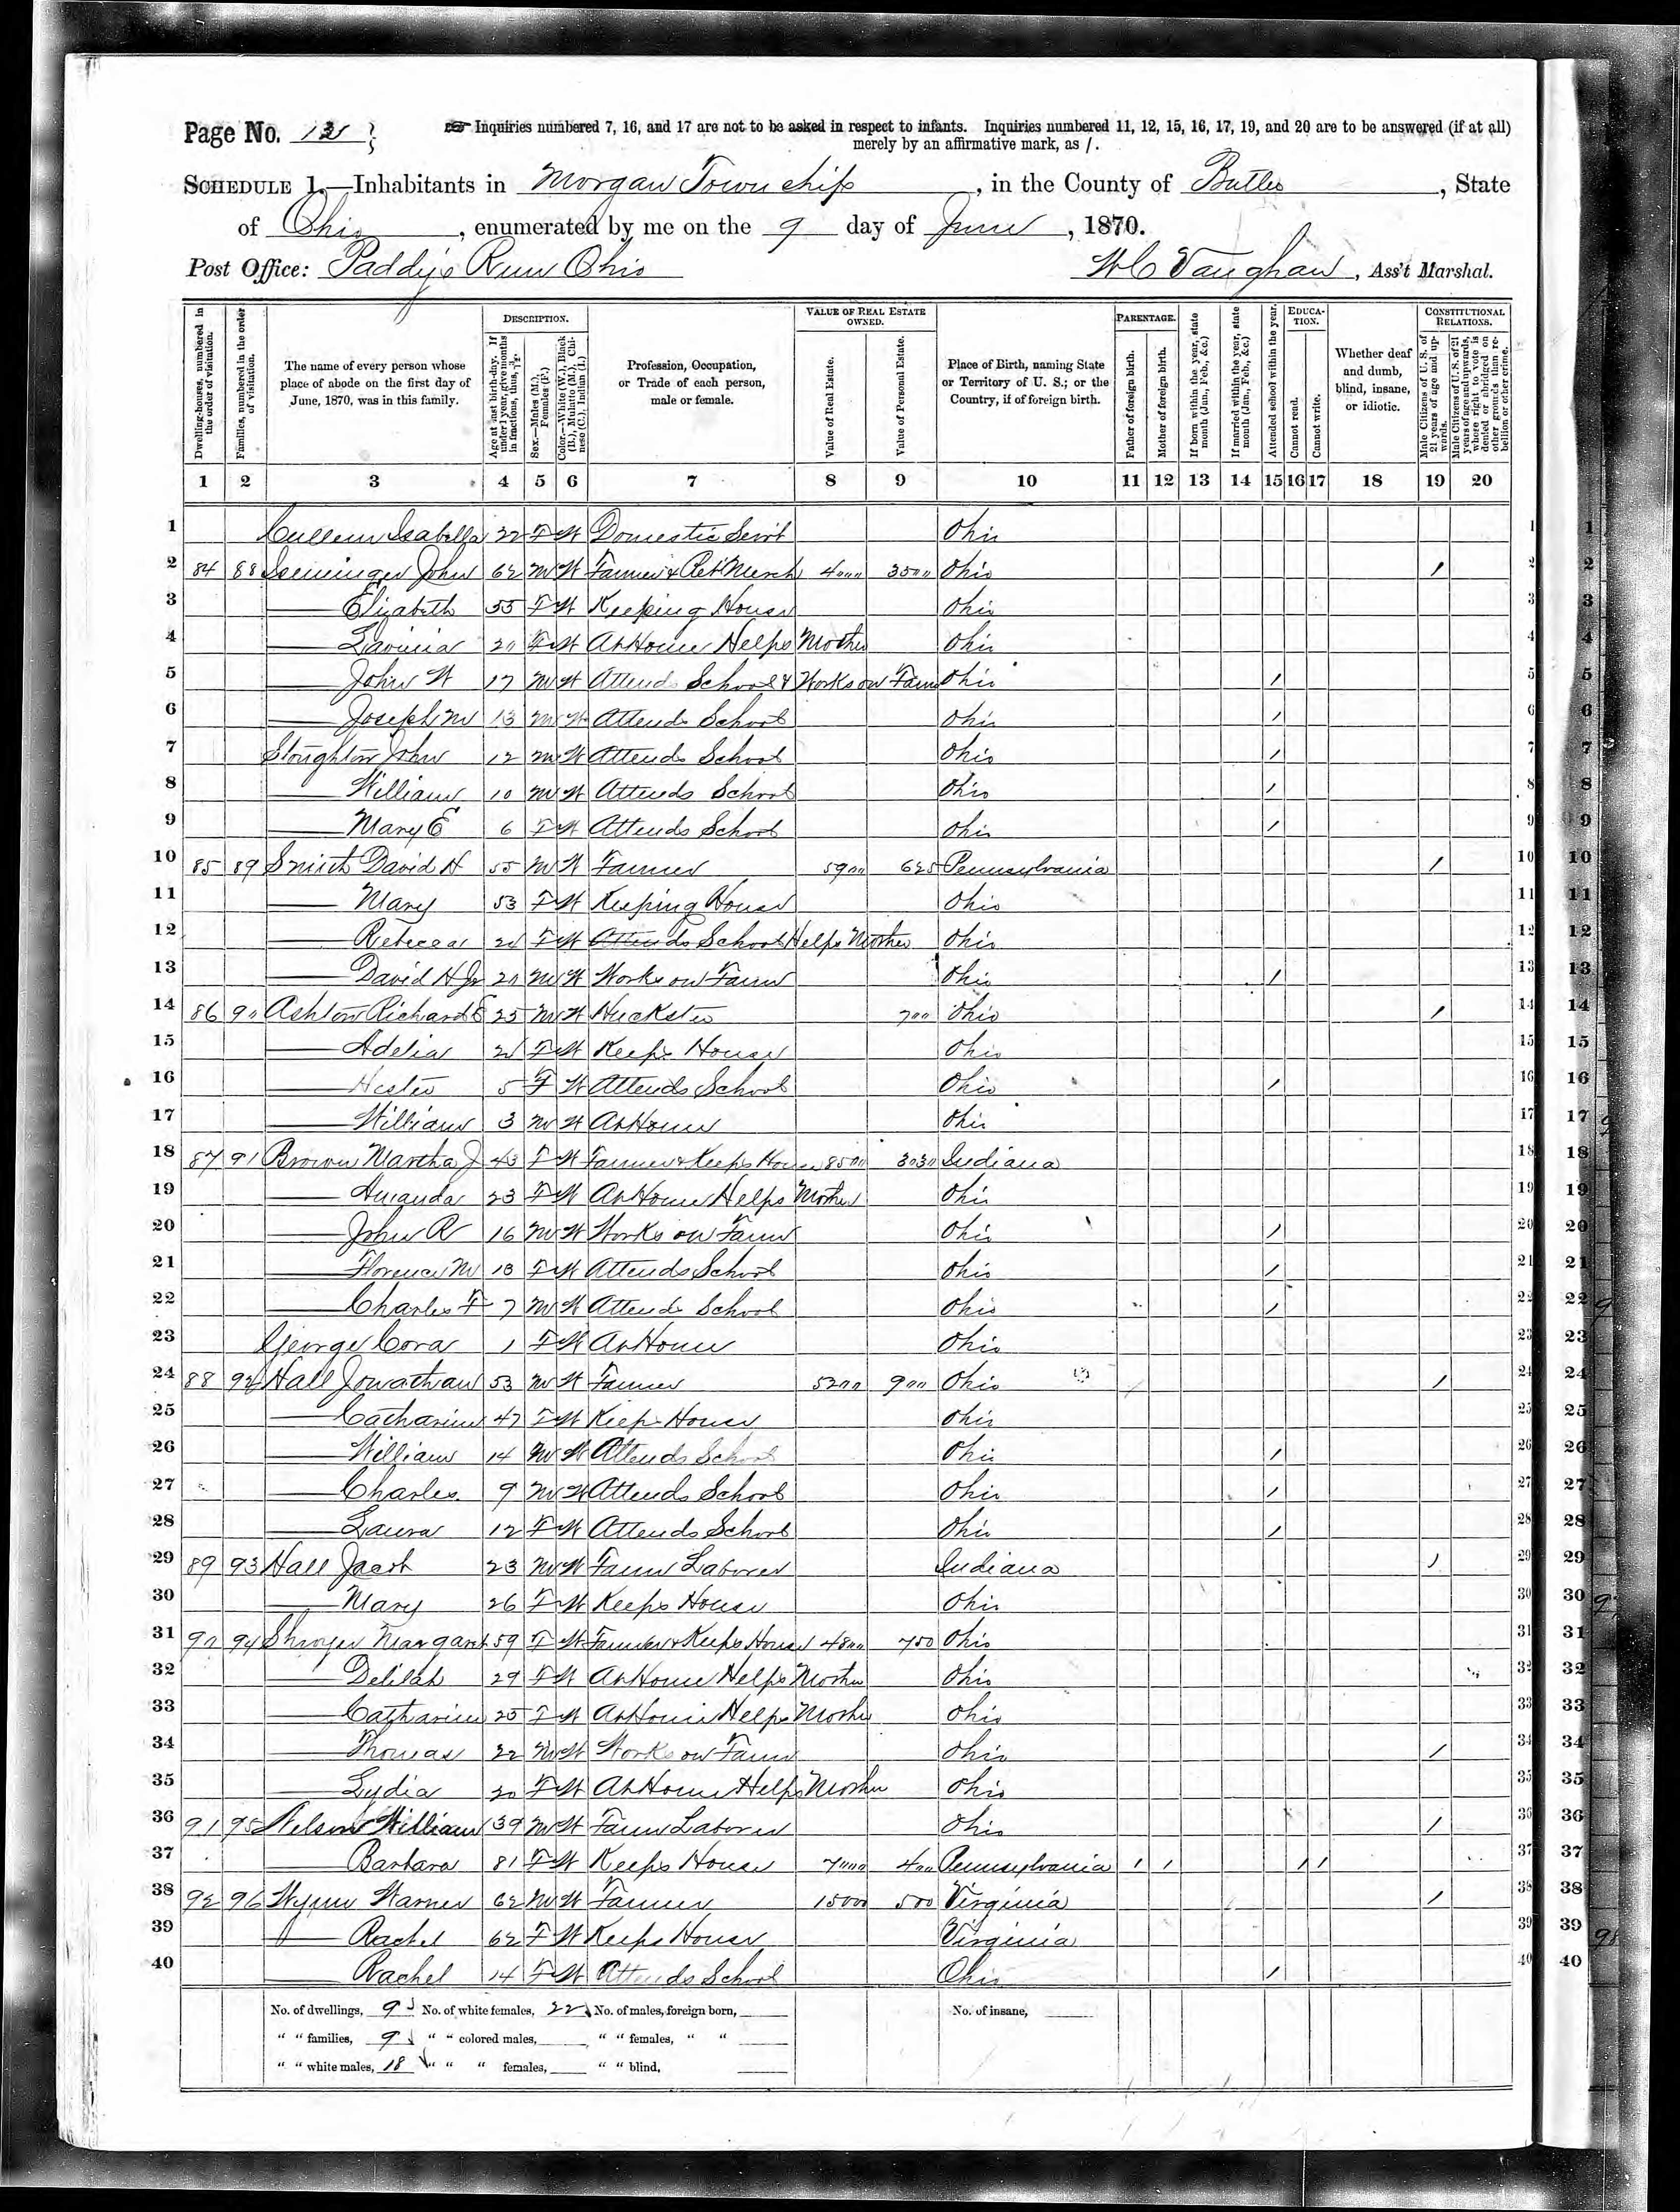 Page No. 12
☞ Inquiries numbered 7, 16, and 17 are not to be asked in respect to infants. Inquiries numbered 11, 12, 15, 16, 17, 19, and 20 are to be answered (if at all)
merely by an affirmative mark, as /.
SCHEDULE 1.—Inhabitants in Morgan Township, in the County of Butler, State
of Ohio, enumerated by me on the 9 day of June, 1870.
Post Office: Paddy's Run Ohio W C Vaughan, Ass't Marshal.
Dwelling-houses, numbered in the order of visitation.
Families, numbered in the order of visitation.
The name of every person whose place of abode on the first day of June, 1870, was in this family.
DESCRIPTION.
Age at last birth-day. If under 1 year, give months in fractions, thus, 3/12.
Sex.—Males (M.), Females (F.)
Color.—White (W.), Black (B.), Mulatto (M.), Chinese (C.), Indian (I.)
Profession, Occupation, or Trade of each person, male or female.
VALUE OF REAL ESTATE OWNED.
Value of Real Estate.
Value of Personal Estate.
Place of Birth, naming State or Territory of U. S.; or the Country, if of foreign birth.
PARENTAGE.
Father of foreign birth.
Mother of foreign birth.
If born within the year, state month (Jan., Feb., &c.)
If married within the year, state month (Jan., Feb., &c.)
Attended school within the year.
EDUCATION.
Cannot read.
Cannot write.
Whether deaf and dumb, blind, insane, or idiotic.
CONSTITUTIONAL RELATIONS.
Male Citizens of U. S. of 21 years of age and upwards.
Male Citizens of U. S. of 21 years of age and upwards, where right to vote is denied or abridged on other grounds than rebellion or other crime.
1 2 3 4 5 6 7 8 9 10 11 12 13 14 15 16 17 18 19 20
1 Isabella 22 F W Domestic Servt Ohio 1
2 84 88 John 62 M W Farmer & Ret Merch 4000 3500 Ohio / 2
3 — Elizabeth 55 F W Keeping House Ohio 3
4 — Lavinia 20 F W At Home Helps Mother Ohio 4
5 — John W 17 M W Attends School & Works on Farm Ohio / 5
6 — Joseph M 13 M W Attends School Ohio / 6
7 Stoughton John 12 M W Attends School Ohio / 7
8 — William 10 M W Attends School Ohio / 8
9 — Mary E 6 F W Attends School Ohio / 9
10 85 89 Smith David H 55 M W Farmer 5900 625 Pennsylvania / 10
11 — Mary 53 F W Keeping House Ohio 11
12 — Rebecca F W Attends School Helps Mother Ohio 12
13 — David H Jr 20 M W Works on Farm Ohio / 13
14 86 90 Ashton Richard E 25 M W Huckster 700 Ohio / 14
15 — Adelia F W Keeps House Ohio 15
16 — Hester 5 F W Attends School Ohio / 16
17 — William 3 M W At Home Ohio 17
18 87 91 Brown Martha J 43 F W Farmer & Keeps House 8500 3030 Indiana 18
19 — Amanda 23 F W At Home Helps Mother Ohio 19
20 — John R 16 M W Works on Farm Ohio / 20
21 — Florence M 13 F W Attends School Ohio / 21
22 — Charles F 7 M W Attends School Ohio / 22
23 George Cora 1 F W At Home Ohio 23
24 88 92 Hall Jonathan 53 M W Farmer 5200 900 Ohio / 24
25 — Catharine 47 F W Keeps House Ohio 25
26 — William 14 M W Attends School Ohio / 26
27 — Charles 9 M W Attends School Ohio / 27
28 — Laura 12 F W Attends School Ohio / 28
29 89 93 Hall Jacob 23 M W Farm Laborer Indiana / 29
30 — Mary 26 F W Keeps House Ohio 30
31 90 94 Shroyer Margaret 59 F W Farmer & Keeps House 4800 750 Ohio 31
32 — Delilah 29 F W At Home Helps Mother Ohio 32
33 — Catharine 25 F W At Home Helps Mother Ohio 33
34 — Thomas 22 M W Works on Farm Ohio / 34
35 — Lydia 20 F W At Home Helps Mother Ohio 35
36 91 95 Nelson William 39 M W Farm Laborer Ohio / 36
37 — Barbara 81 F W Keeps House 7000 400 Pennsylvania / / / / 37
38 92 96 Wynn Warner 62 M W Farmer 15000 500 Virginia / 38
39 — Rachel 62 F W Keeps House Virginia 39
40 — Rachel 14 F W Attends School Ohio / 40
No. of dwellings, 9 No. of white females, 22 No. of males, foreign born, No. of insane,
" " families, 9 " " colored males, " " females, " "
" " white males, 18 " " " females, " " blind,